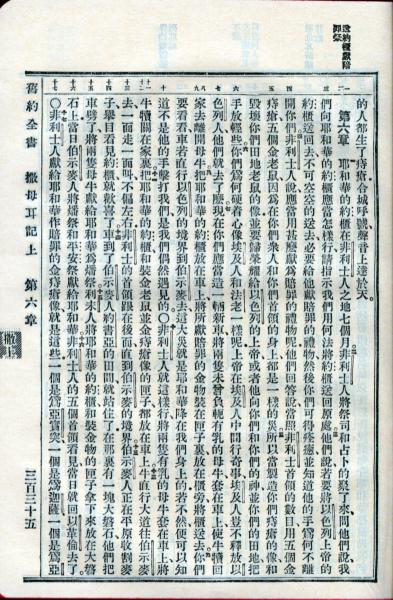 送約櫃獻賠
罪祭
的人都生了痔瘡合城呼號聲音上達於天
第六章 耶和華的約櫃在非利士人之地七個月非利士人將祭司和占卜的聚了來問他們說我
們向耶和華的約櫃應當怎樣行請指示我們用何法將約櫃送回原處他們說若要將以色列上帝的
約櫃送回去不可空空的送去必要給他獻賠罪的禮物然後你們可得痊癒並知道他的手爲何不離
開你們非利士人說應當用甚麼獻爲賠罪的禮物呢他們回答說當照非利士首領的數目用五個金
痔瘡五個金老鼠因爲在你們衆人和你們首領的身上都是一樣的災所以當製造你們痔瘡的像和
毀壞你們田地老鼠的像並要歸榮耀給以色列的上帝或者他向你們和你們的神並你們的田地把
手放輕些你們爲何硬着心像埃及人和法老一樣呢上帝在埃及人中間行奇事埃及人豈不釋放以
色列人他們就去了麼現在你們應當造一輛新車將兩隻未曾負軛有乳的母牛套在車上使牛犢回
家去離開母牛把耶和華的約櫃放在車上將所獻賠罪的金物裝在匣子裏放在櫃旁將櫃送去你們
要看看車若直行以色列的境界到伯示麥去這大災就是耶和華降在我們身上的若不然便可以知
道不是他的手擊打我們是我們偶然遇見的○非利士人就這樣行將兩隻有乳的母牛套在車上將
牛犢關在家裏把耶和華的約櫃和裝金老鼠並金痔瘡像的匣子都放在車上牛直行大道往伯示麥
去一面走一面叫不偏左右非利士的首領跟在後面直到伯示麥的境界伯示麥人正在平原收割麥
子舉目看見約櫃就歡喜了車到了伯示麥人約書亞的田間就站住了在那裏有一塊大磐石他們把
車劈了將兩隻母牛獻給耶和華爲燔祭利未人將耶和華的約櫃和裝金物的匣子拿下來放在大磐
石上當日伯示麥人將燔祭和平安祭獻給耶和華非利士人的五個首領看見當日就回以革倫去了
○非利士人獻給耶和華作賠罪的金痔瘡像就是這些一個是爲亞實突一個是爲迦薩一個是爲亞
舊約全書 撒母耳記上 第六章 三百三十五
撒上